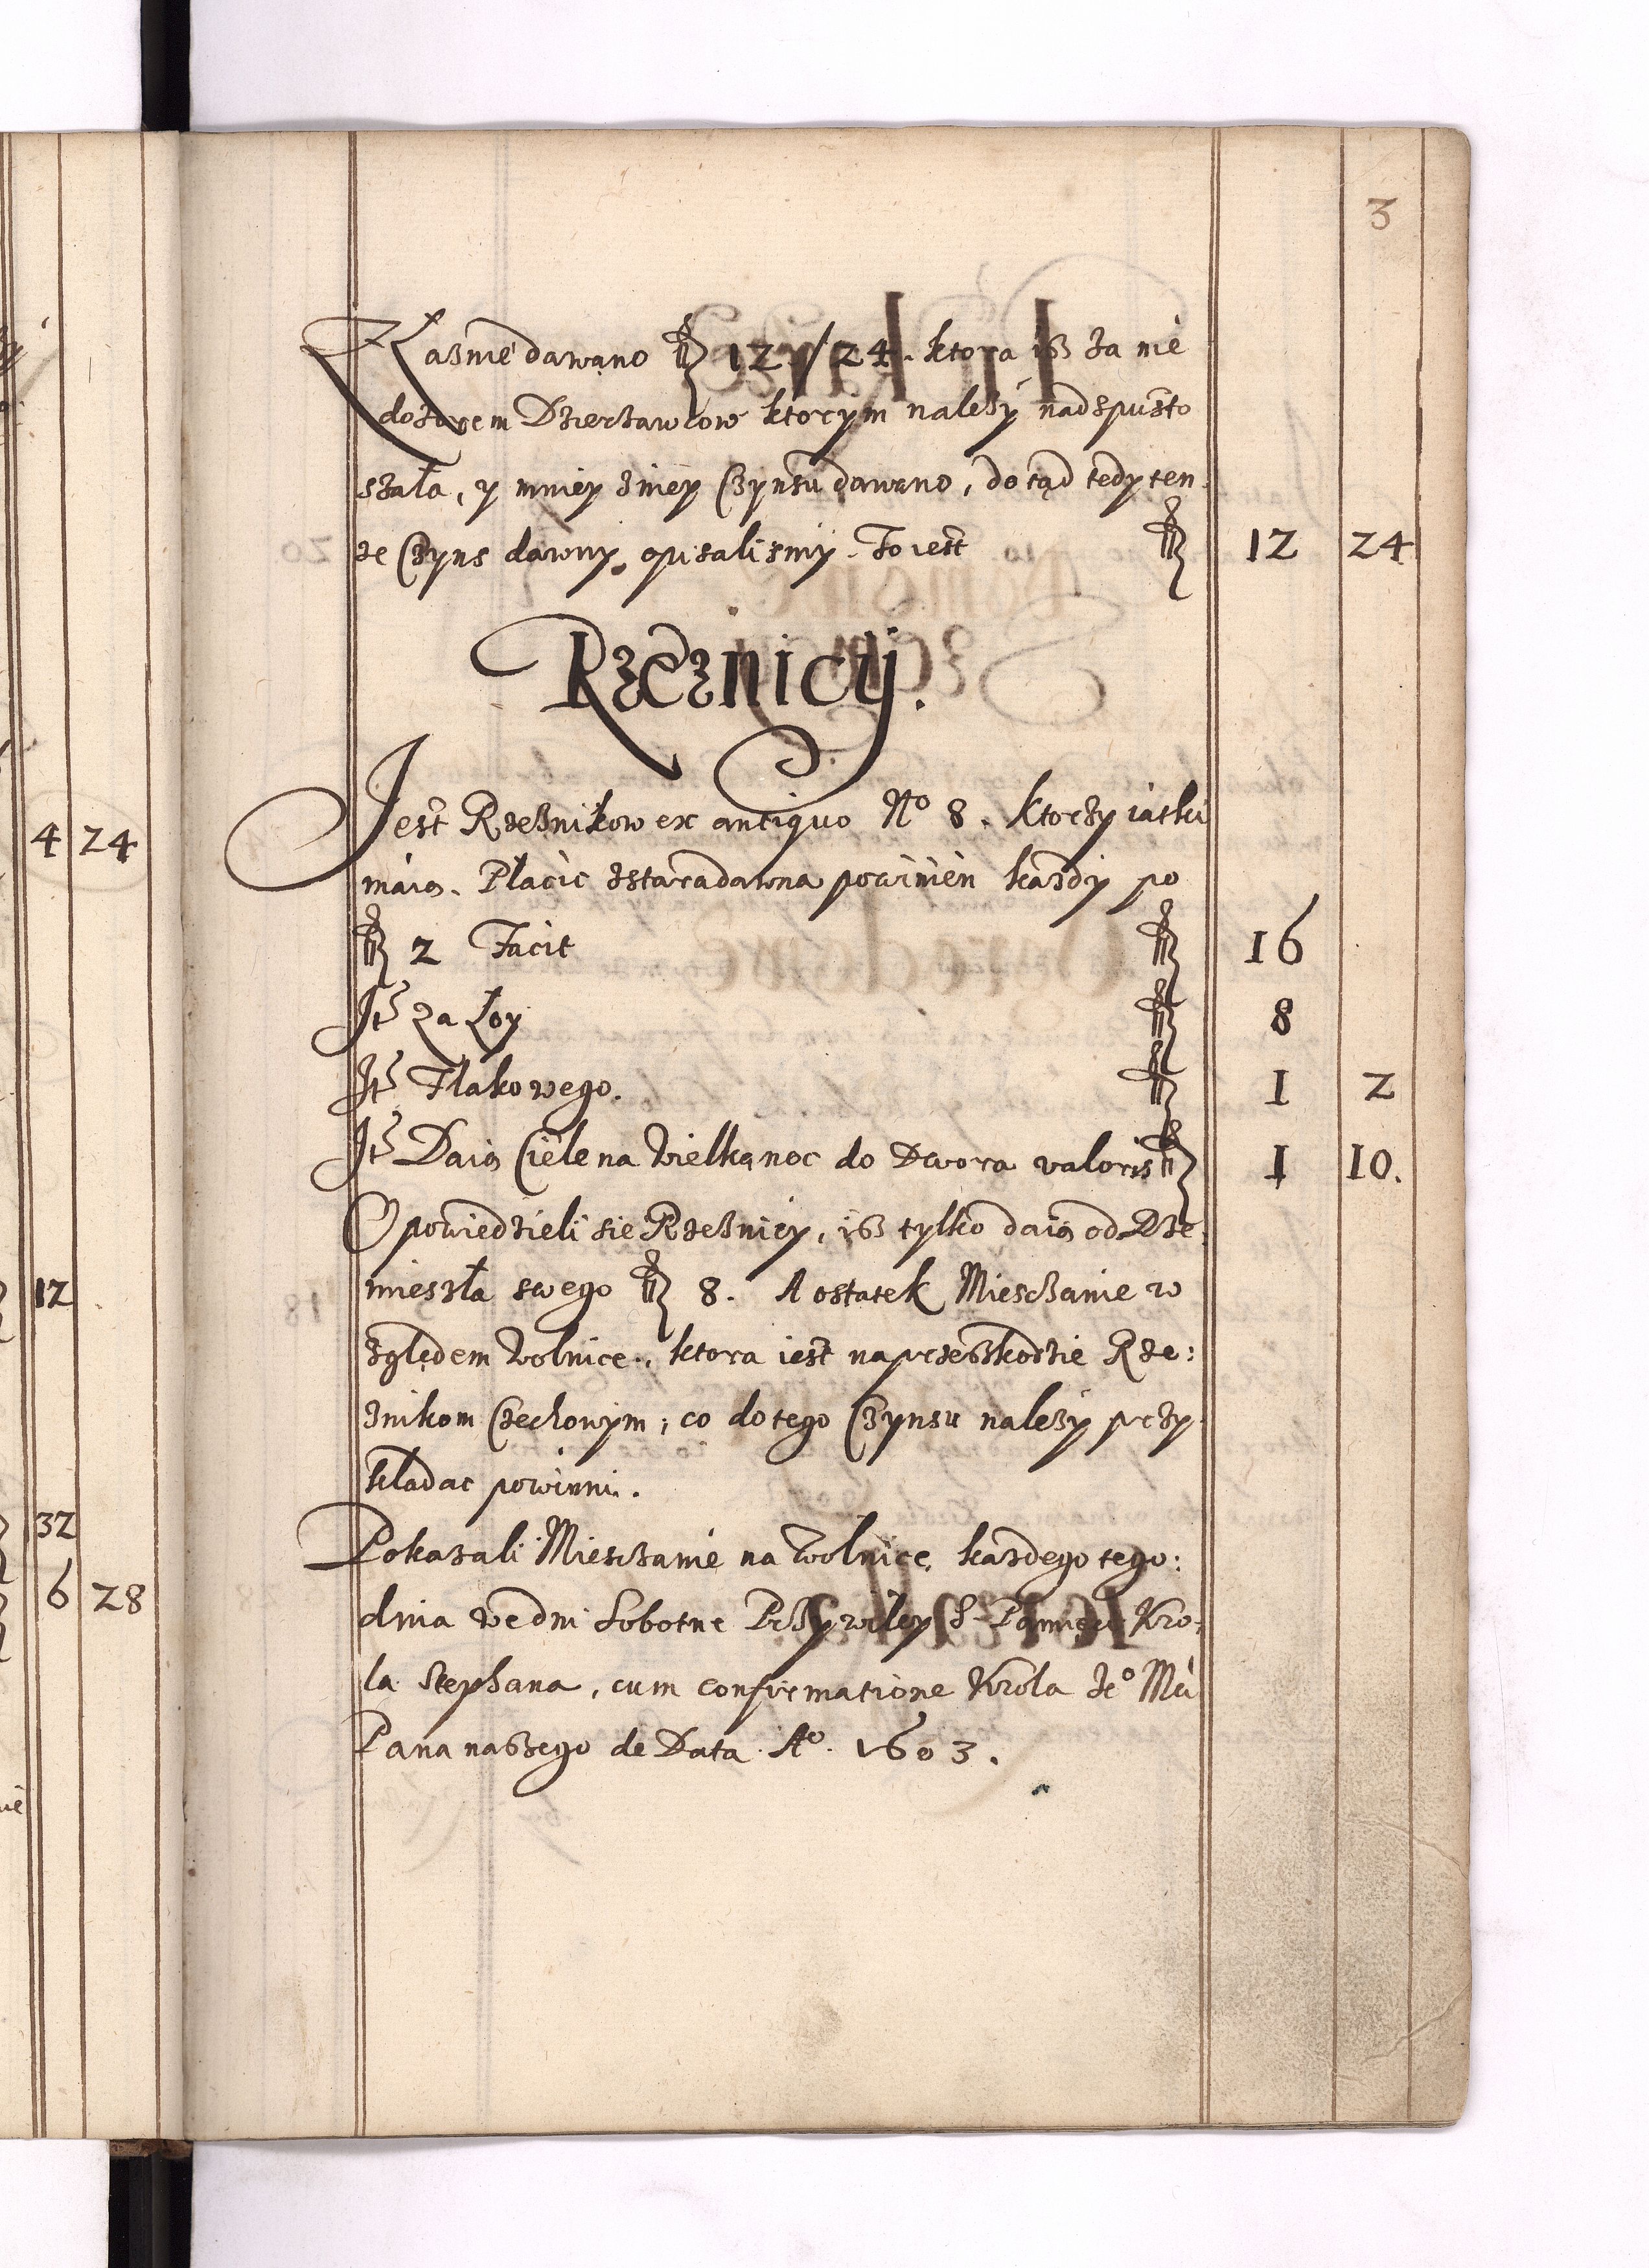 3
Łaźnie dawano fl 12 / 24. ktora iß za nie
dozorem Dzierżawcow ktorym należy nadspusto
szała, y mniey zniey Czynsu dawano, do tąd tedy ten
że Czyns dawny opisalismy. To iest fl 12 24
Rzeznicy.
Jest Rzeßnikow ex antiquo No 8. ktorzy iatki
maią. Płacic zstaradawna powinien każdy po
fl 2 Facit fl 16
Itē Za Łoy fl 8
Itē Flakowego. fl 1 2
Itē Daią Ciele na Wielkąnoc do Dwora valoris fl 1 10.
Opowiedzieli sie Rzeßnicy, iß tylko daią od Rze
mieszła swego fl 8. A ostatek Miesczanie w
zględem Wolnice, ktora iest na przeßkodzie Rze:
znikom Czechowym, co do tego Czynsu należy przy
kładac powinni.
Pokazali Miesczanie na Wolnice każdego tego:
dnia we dni Sobotne Przywiley S. Pamięci Kro:
la Stephana, cum confirmatione Krola Jeo Mci
Pana naßzego de Data Ao. 1603.
4 24
12
32
6 28